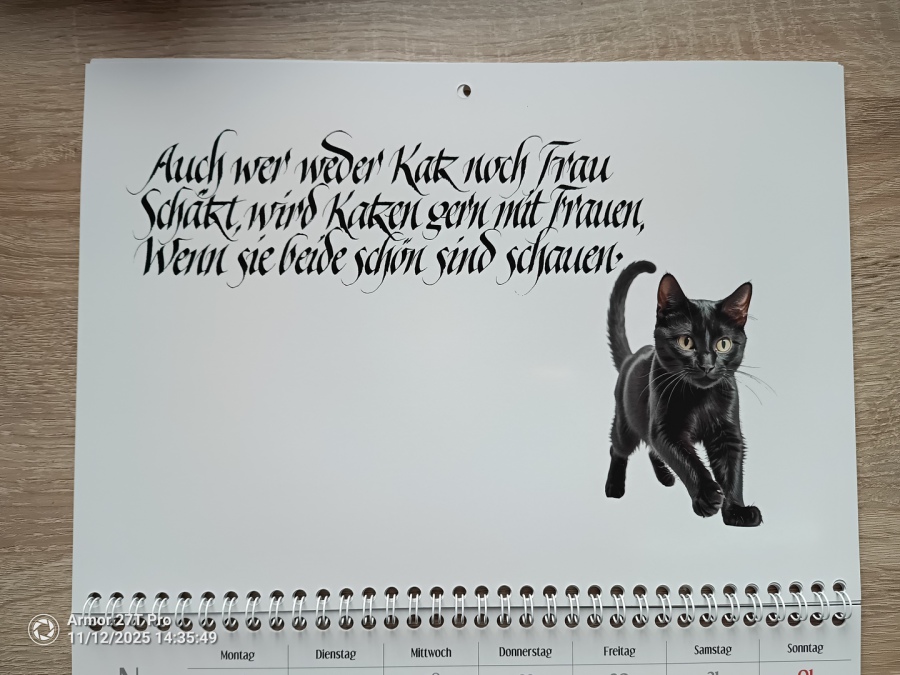 Auch wer weder Katz noch Frau
Schätzt, wird Katzen gern mit Frauen,
Wenn sie beide schön sind schauen.
Armor 27T Pro
11/12/2025 14:35:49
Montag Dienstag Mittwoch Donnerstag Freitag Samstag Sonntag